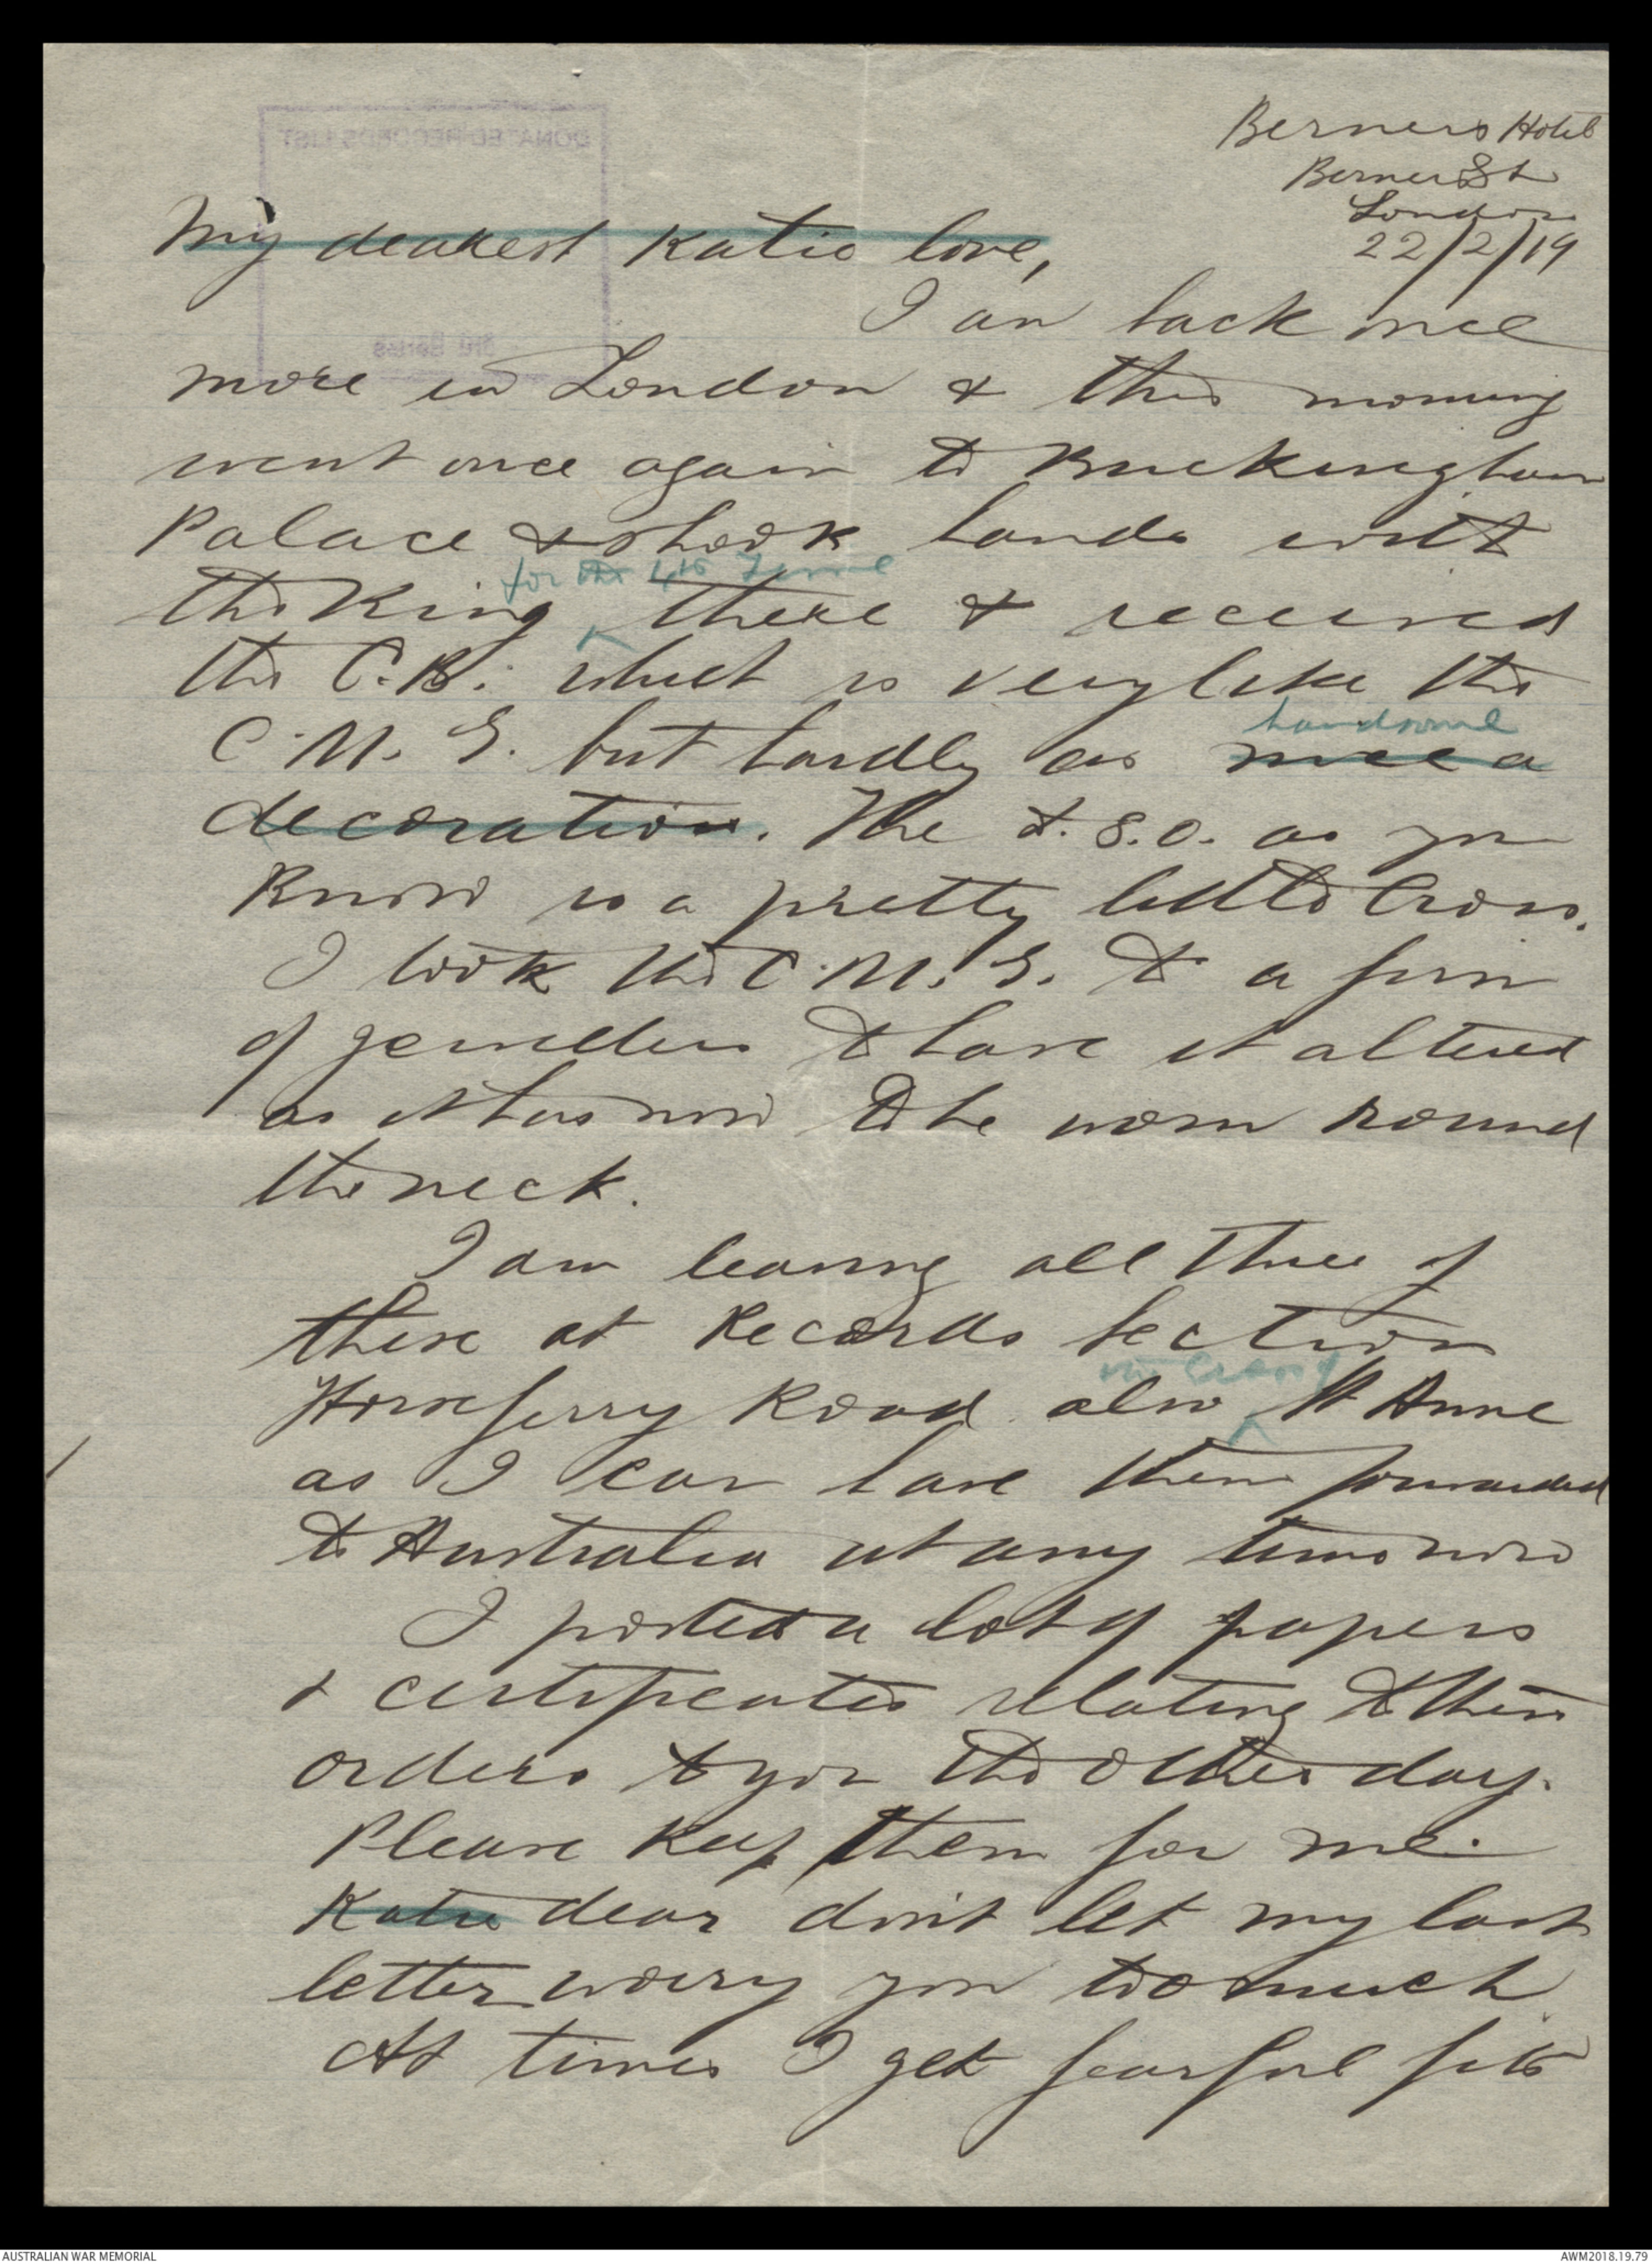 Berners Hotel
Berners St
London
22/2/19
My dearest Katie love,
I am back once
more in London & this morning
went once again to Buckingham
Palace & shook hands with
for the 4th time
the King there & received
the C.B. which is very like the
handsome
C.M.G. but hardly as nice a
decoration. The D.S.O. as you
know is a pretty little Cross.
I took the C.M.G. to a firm
of jewellers to have it altered
as it has now to be worn round
the neck.
I am leaving all three of
these at Records Section
Horseferry Road also St Anne
as I can have them forwarded
to Australia at any time now
I posted a lot of papers
& certificates relating to these
orders to you the other day.
Please keep them for me.
Katie dear don't let my last
letter worry you too much
At times I get fearful fits
AUSTRALIAN WAR MEMORIAL
AWM2018.19.79